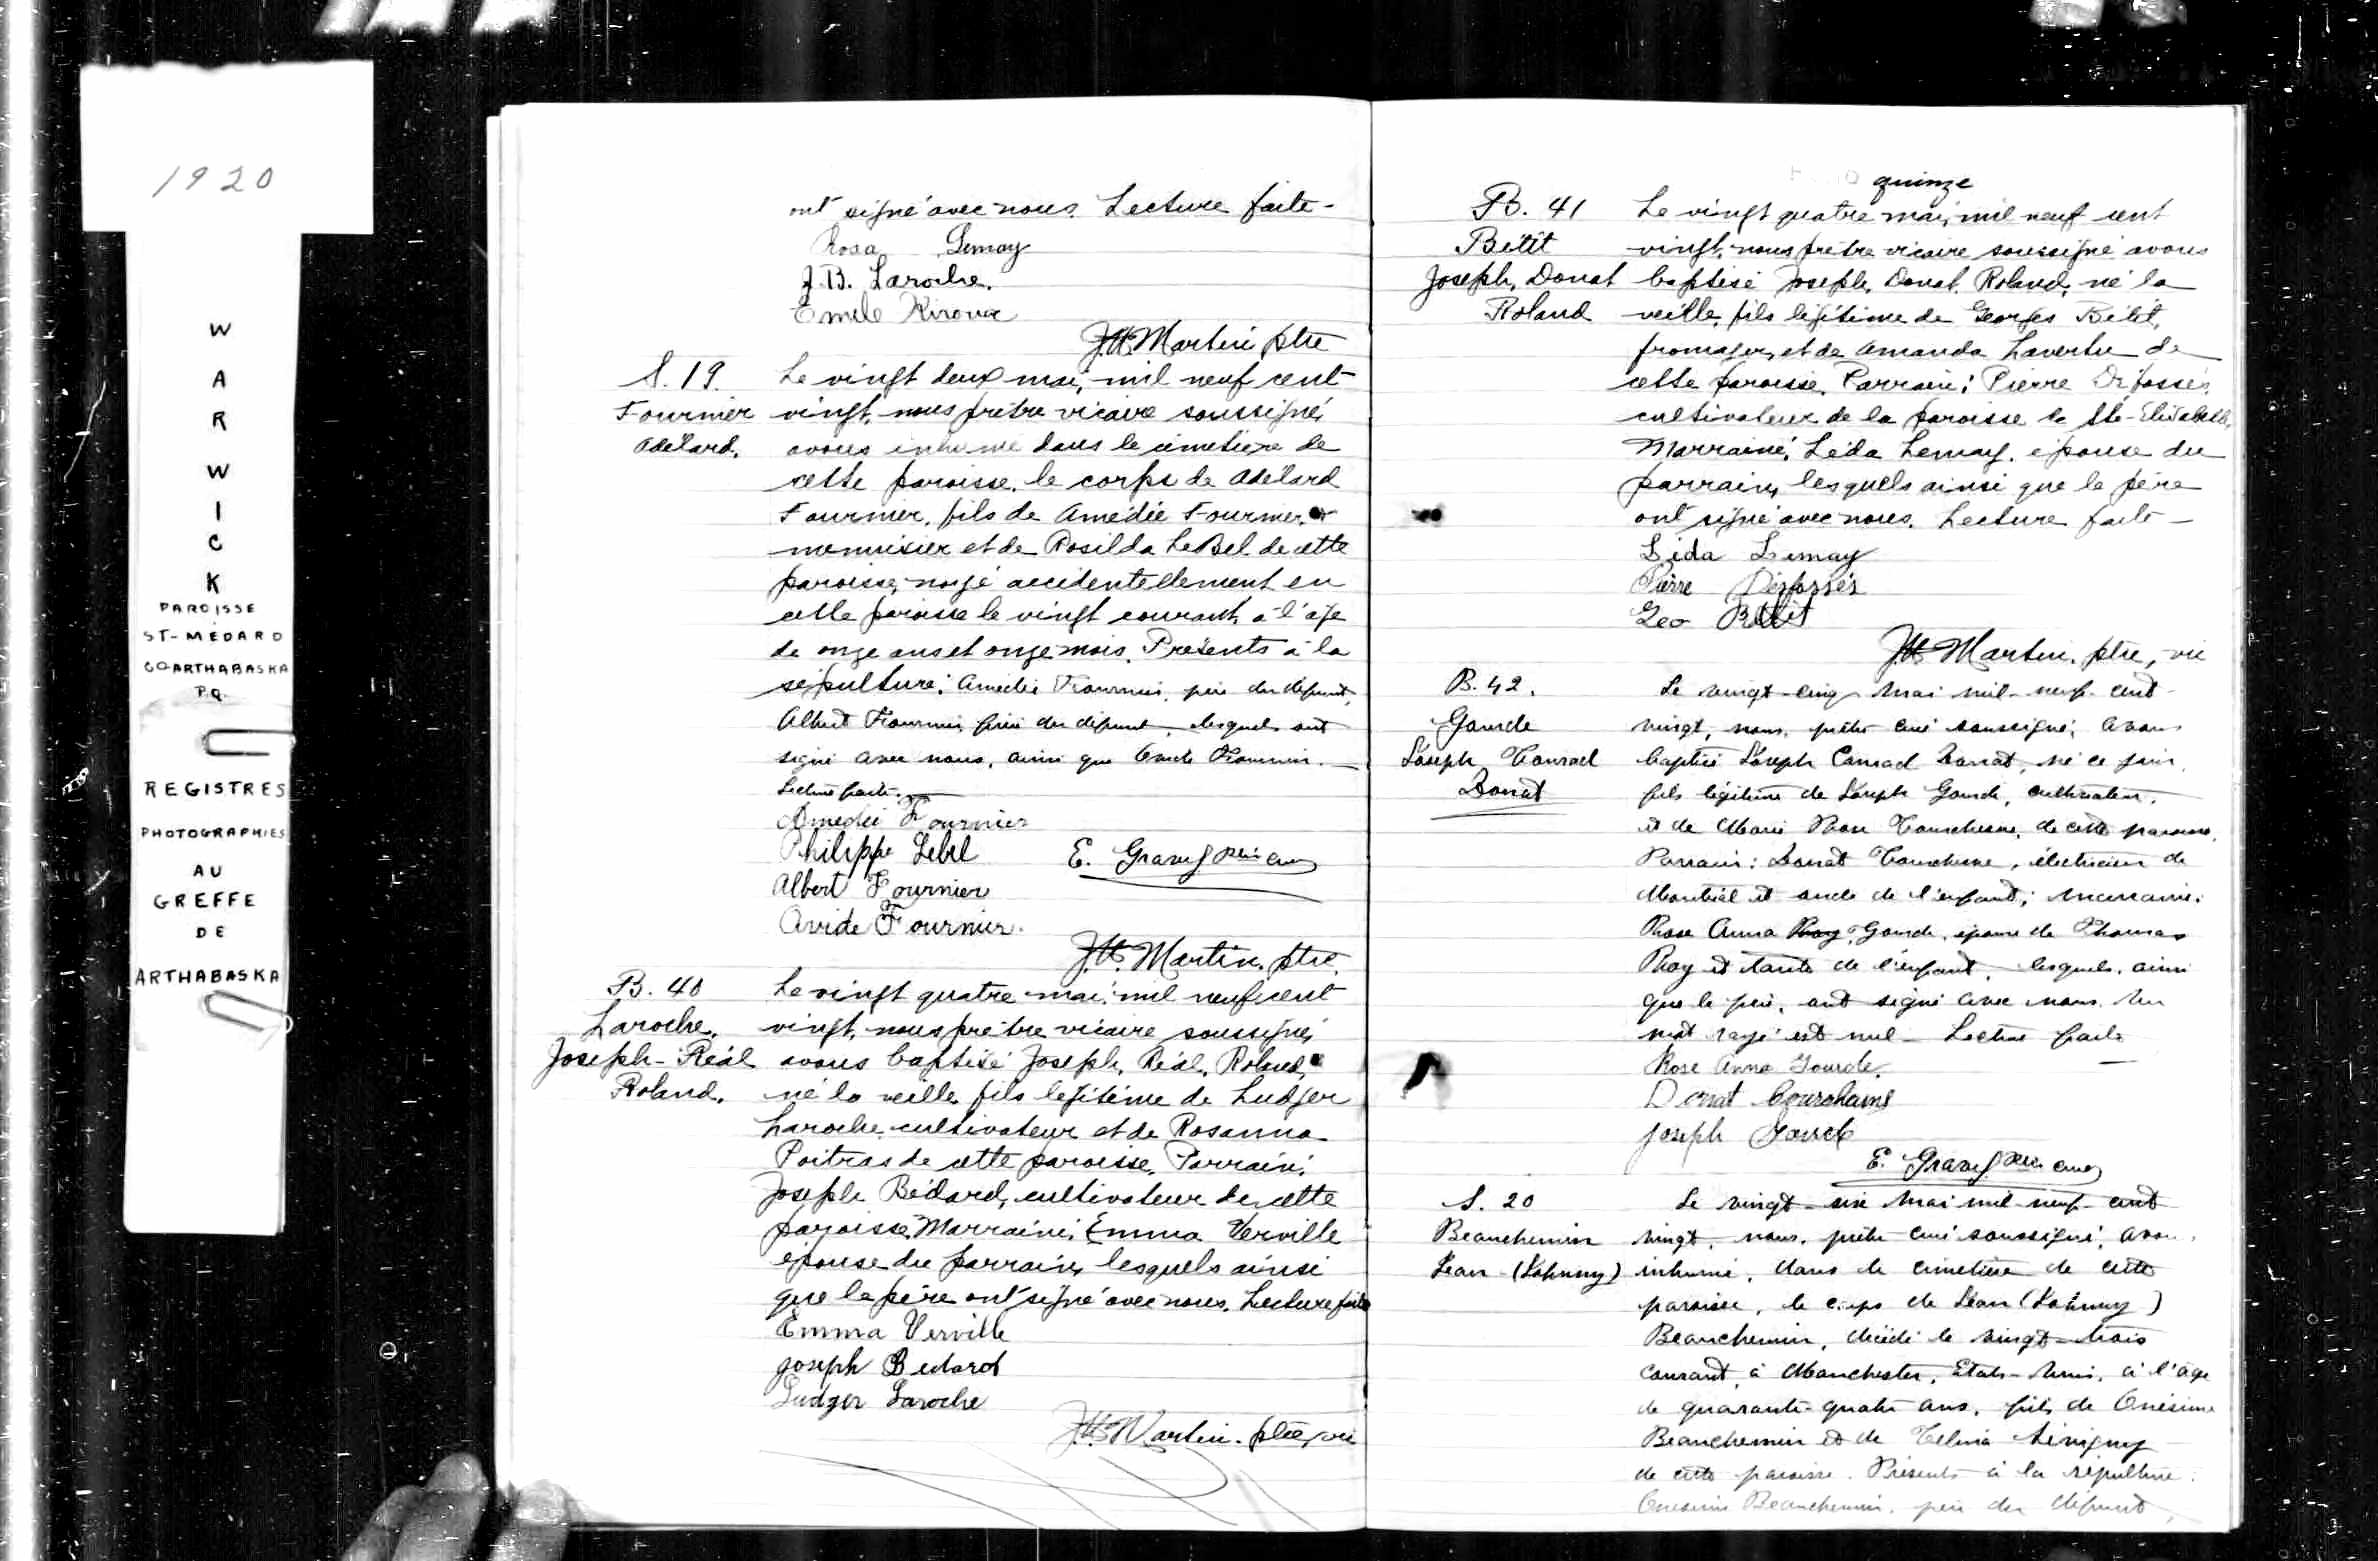 1920
W
A
R
W
I
C
K
PAROISSE
ST-MÉDARD
CO ARTHABASKA
P.Q.
REGISTRES
PHOTOGRAPHIES
AU
GREFFE
DE
ARTHABASKA
ont signé avec nous. Lecture faite-
Rosa Lemay
J.B. Laroche.
Emile Kirouac
J.H. Martin ptre
S. 19. Le vingt deux mai, mil neuf cent
Fournier vingt, nous prêtre vicaire soussigné,
Adélard. avons inhumé dans le cimetière de
cette paroisse, le corps de Adélard
Fournier, fils de Amédée Fournier
menuisier et de Rosilda LeBel de cette
paroisse, noyé accidentellement en
cette paroisse le vingt courant, à l'âge
de onze ans et onze mois. Présents à la
sépulture: Amédée Fournier, père du défunt,
Albert Fournier, frère du défunt, lesquels ont
signé avec nous, ainsi que Fournier.
Lecture faite.
Amedée Fournier
Philippe Lebel E. Gravel curé
Albert Fournier
Avide Fournier.
J.H. Martin. ptre.
B. 40 Le vingt quatre mai, mil neuf cent
Laroche, vingt, nous prêtre vicaire soussigné,
Joseph-Réal avons baptisé Joseph, Réal, Roland,
Roland. né la veille, fils légitime de Ludger
Laroche, cultivateur et de Rosanna
Poitras de cette paroisse. Parrain:
Joseph Bédard, cultivateur de cette
paroisse, Marraine: Emma Verville
épouse du parrain, lesquels ainsi
que le père ont signé avec nous. Lecture faite
Emma Verville
Joseph Bedard
Ludger Laroche
J.H. Martin. ptre, vic
quinze
B. 41 Le vingt quatre mai, mil neuf cent
Bétit vingt, nous prêtre vicaire soussigné avons
Joseph, Donat baptisé Joseph, Donat, Roland, né la
Roland veille, fils légitime de Georges Bétit,
fromager, et de Amanda Lavertu de
cette paroisse. Parrain: Pierre Défossés,
cultivateur de la paroisse de Ste-Elisabeth,
Marraine: Léda Lemay, épouse du
parrain, lesquels ainsi que le père
ont signé avec nous. Lecture faite-
Léda Lemay
Pierre Désfossés
Geo Bétit
J.H. Martin. ptre, vic
B. 42. Le vingt-cinq mai mil-neuf-cent-
Gourde vingt, nous, prêtre curé soussigné, avons
Joseph Conrad baptisé Joseph Conrad Donat, né ce jour,
Donat fils légitime de Joseph Gourde, cultivateur,
et de Marie Rose Courchesne, de cette paroisse.
Parrain: Donat Courchesne, électricien de
Montréal et oncle de l'enfant; marraine:
Rose Anna Roy Gourde, épouse de Thomas
Roy et tante de l'enfant, lesquels, ainsi
que le père, ont signé avec nous. Un
mot rayé est nul- Lecture faite
Rose Anna Gourde.
Donat Courchaine
Joseph Gourde
E. Gravel curé
S. 20 Le vingt-six mai mil-neuf-cent
Beauchemin vingt, nous, prêtre curé soussigné, avons
Jean-(Johnny) inhumé, dans le cimetière de cette
paroisse, le corps de Jean (Johnny)
Beauchemin, décédé le vingt-trois
courant, à Manchester, Etats-Unis, à l'âge
de quarante-quatre ans, fils de Onésime
Beauchemin et de Sévigny
de cette paroisse. Présents à la sépulture:
Onésime Beauchemin, père du défunt,